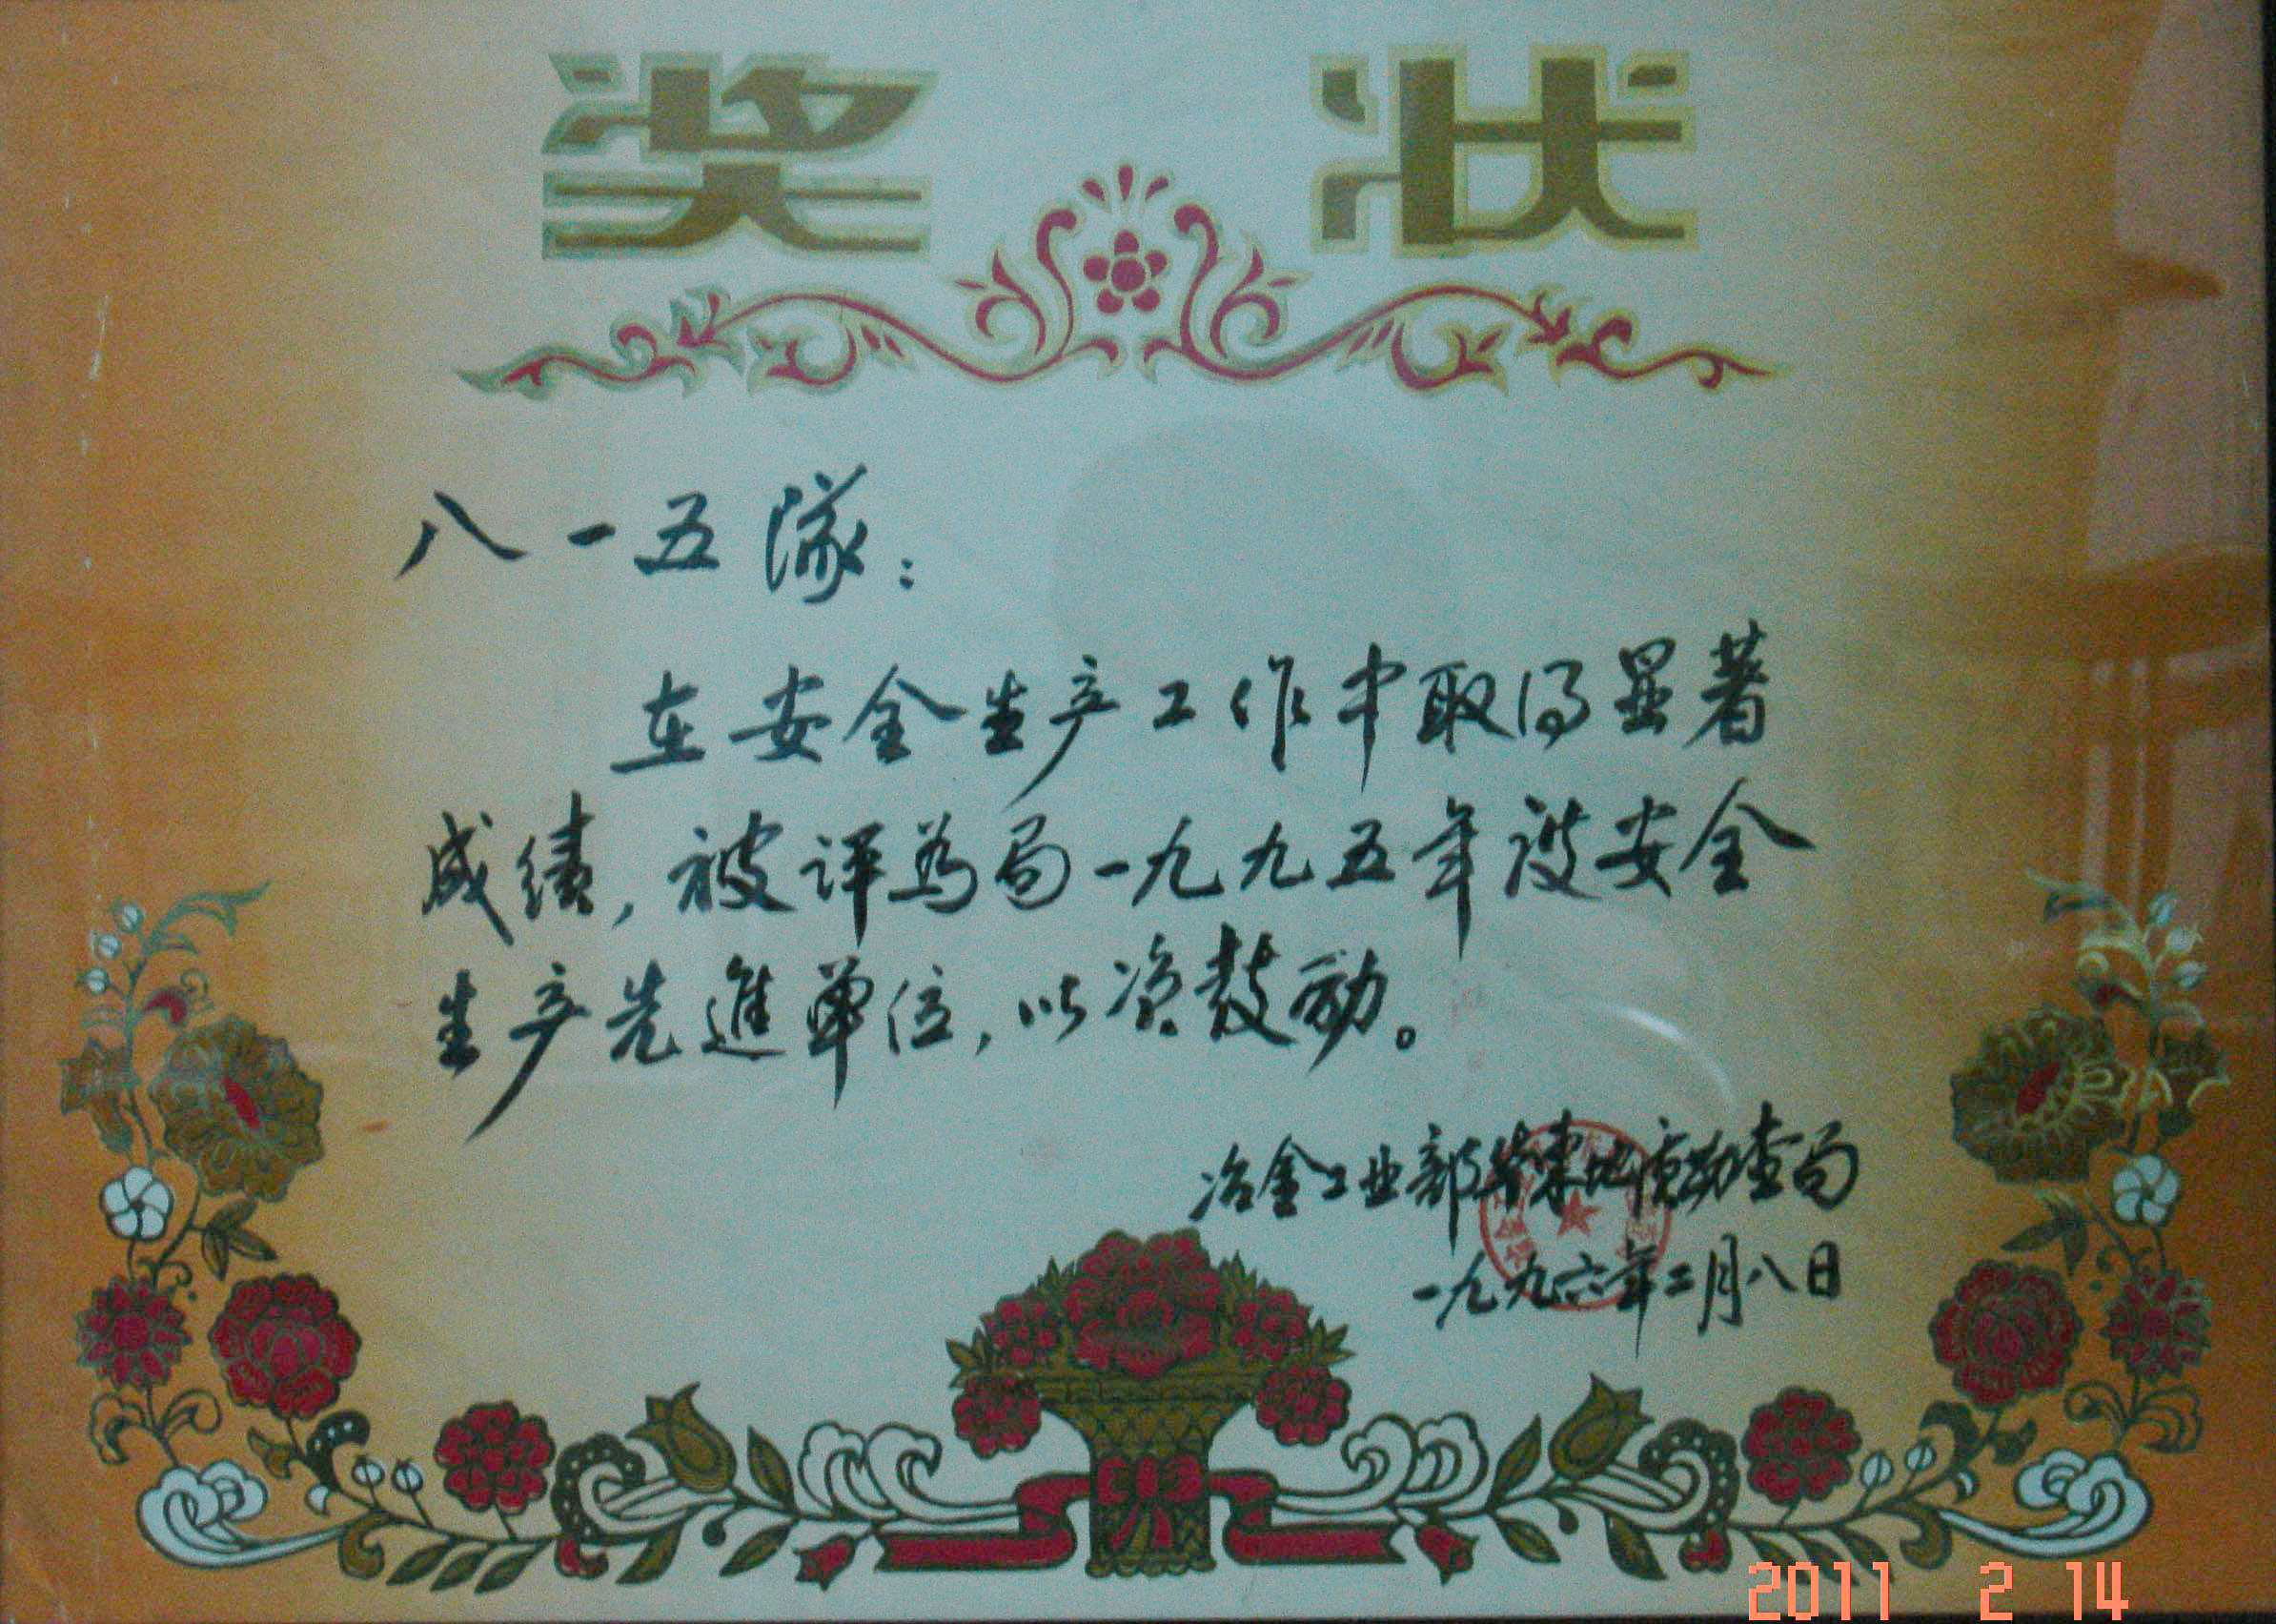 奖 状
八一五隊：
在安全生产工作中取得显著
成绩，被评为局一九九五年度安全
生产先進单位，以资鼓励。
冶金工业部华东地质勘查局
一九九六年二月八日
2011 2 14